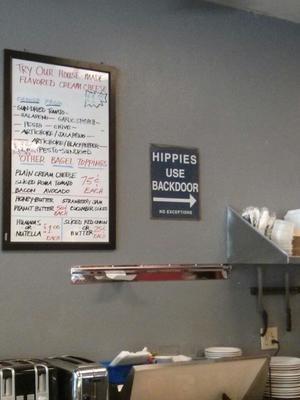 TRY OUR HOUSE MADE
FLAVORED CREAM CHEESE
CHOOSE FROM:
SUN DRIED TOMATO
JALAPENO GARLIC
PESTO CHIVE
ARTICHOKE/JALAPENO
ARTICHOKE/BLACK PEPPER
PESTO-SUN DRIED
OTHER BAGEL TOPPINGS
PLAIN CREAM CHEESE
SLICED ROMA TOMATO 75¢
BACON AVOCADO EACH
HONEY BUTTER STRAWBERRY JAM
PEANUT BUTTER 50¢ CUCUMBER SLICES
EACH
HUMMUS SLICED RED ONION
OR $1.00 OR 25¢
NUTELLA EACH BUTTER EACH
HIPPIES
USE
BACKDOOR
NO EXCEPTIONS